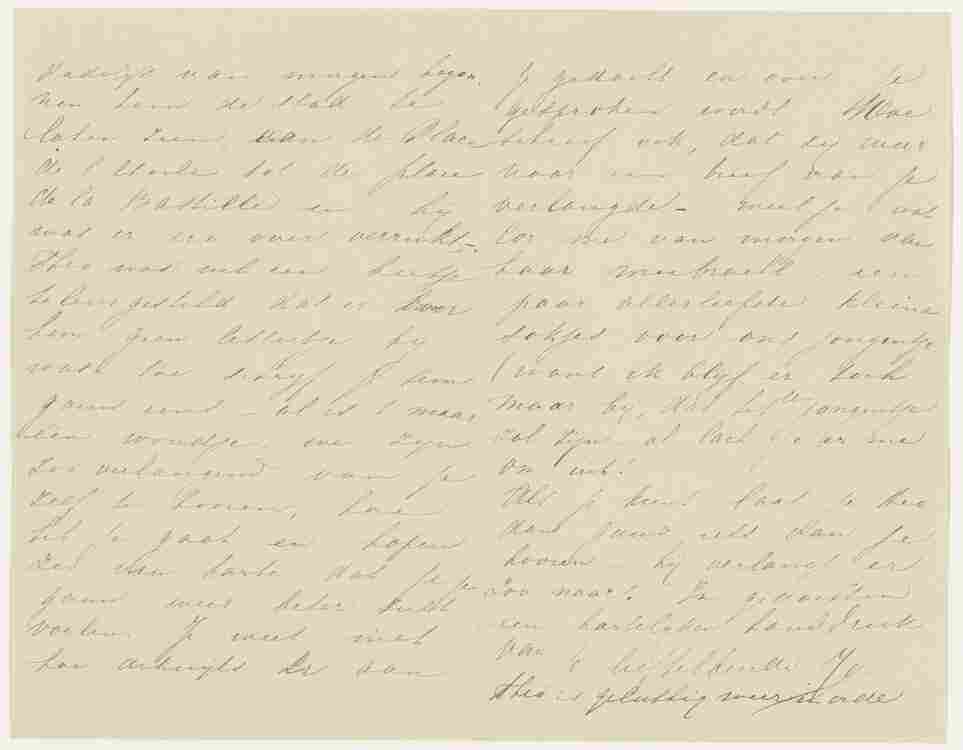 dadelijk van morgen begon
hem de stad te
laten zien van de Place
de l'Etoile tot de place
de la Bastille en hij
was er zoo over verrukt –
Theo was wel een beetje
teleurgesteld dat er voor
hem geen lettertje bij
was toe schrijf je hem
gauw eens – al is 't maar
één woordje, we zijn
zoo verlangend van je
zelf te hooren, hoe
het 'r gaat en hopen
zoo van harte dat je je
gauw weer beter zult
voelen. Je weet niet
hoe dikwijls er aan
je gedacht en over je
gesproken wordt Moe
schreef ook, dat zij weer
naar een brief van je
verlangde – weet je wat
Cor me van morgen van
haar meebracht een
paar allerliefste kleine
sokjes voor ons jongentje
(want ik blijf er toch
maar bij, dat het een jongentje
zal zijn al lach je er me
om uit!
Als je kunt laat je Theo
dan gauw iets van je
hooren – hij verlangt er
zoo naar! In gedachten
een hartelijken handdruk
van je liefhebbende Jo
Theo is gelukkig weer in orde